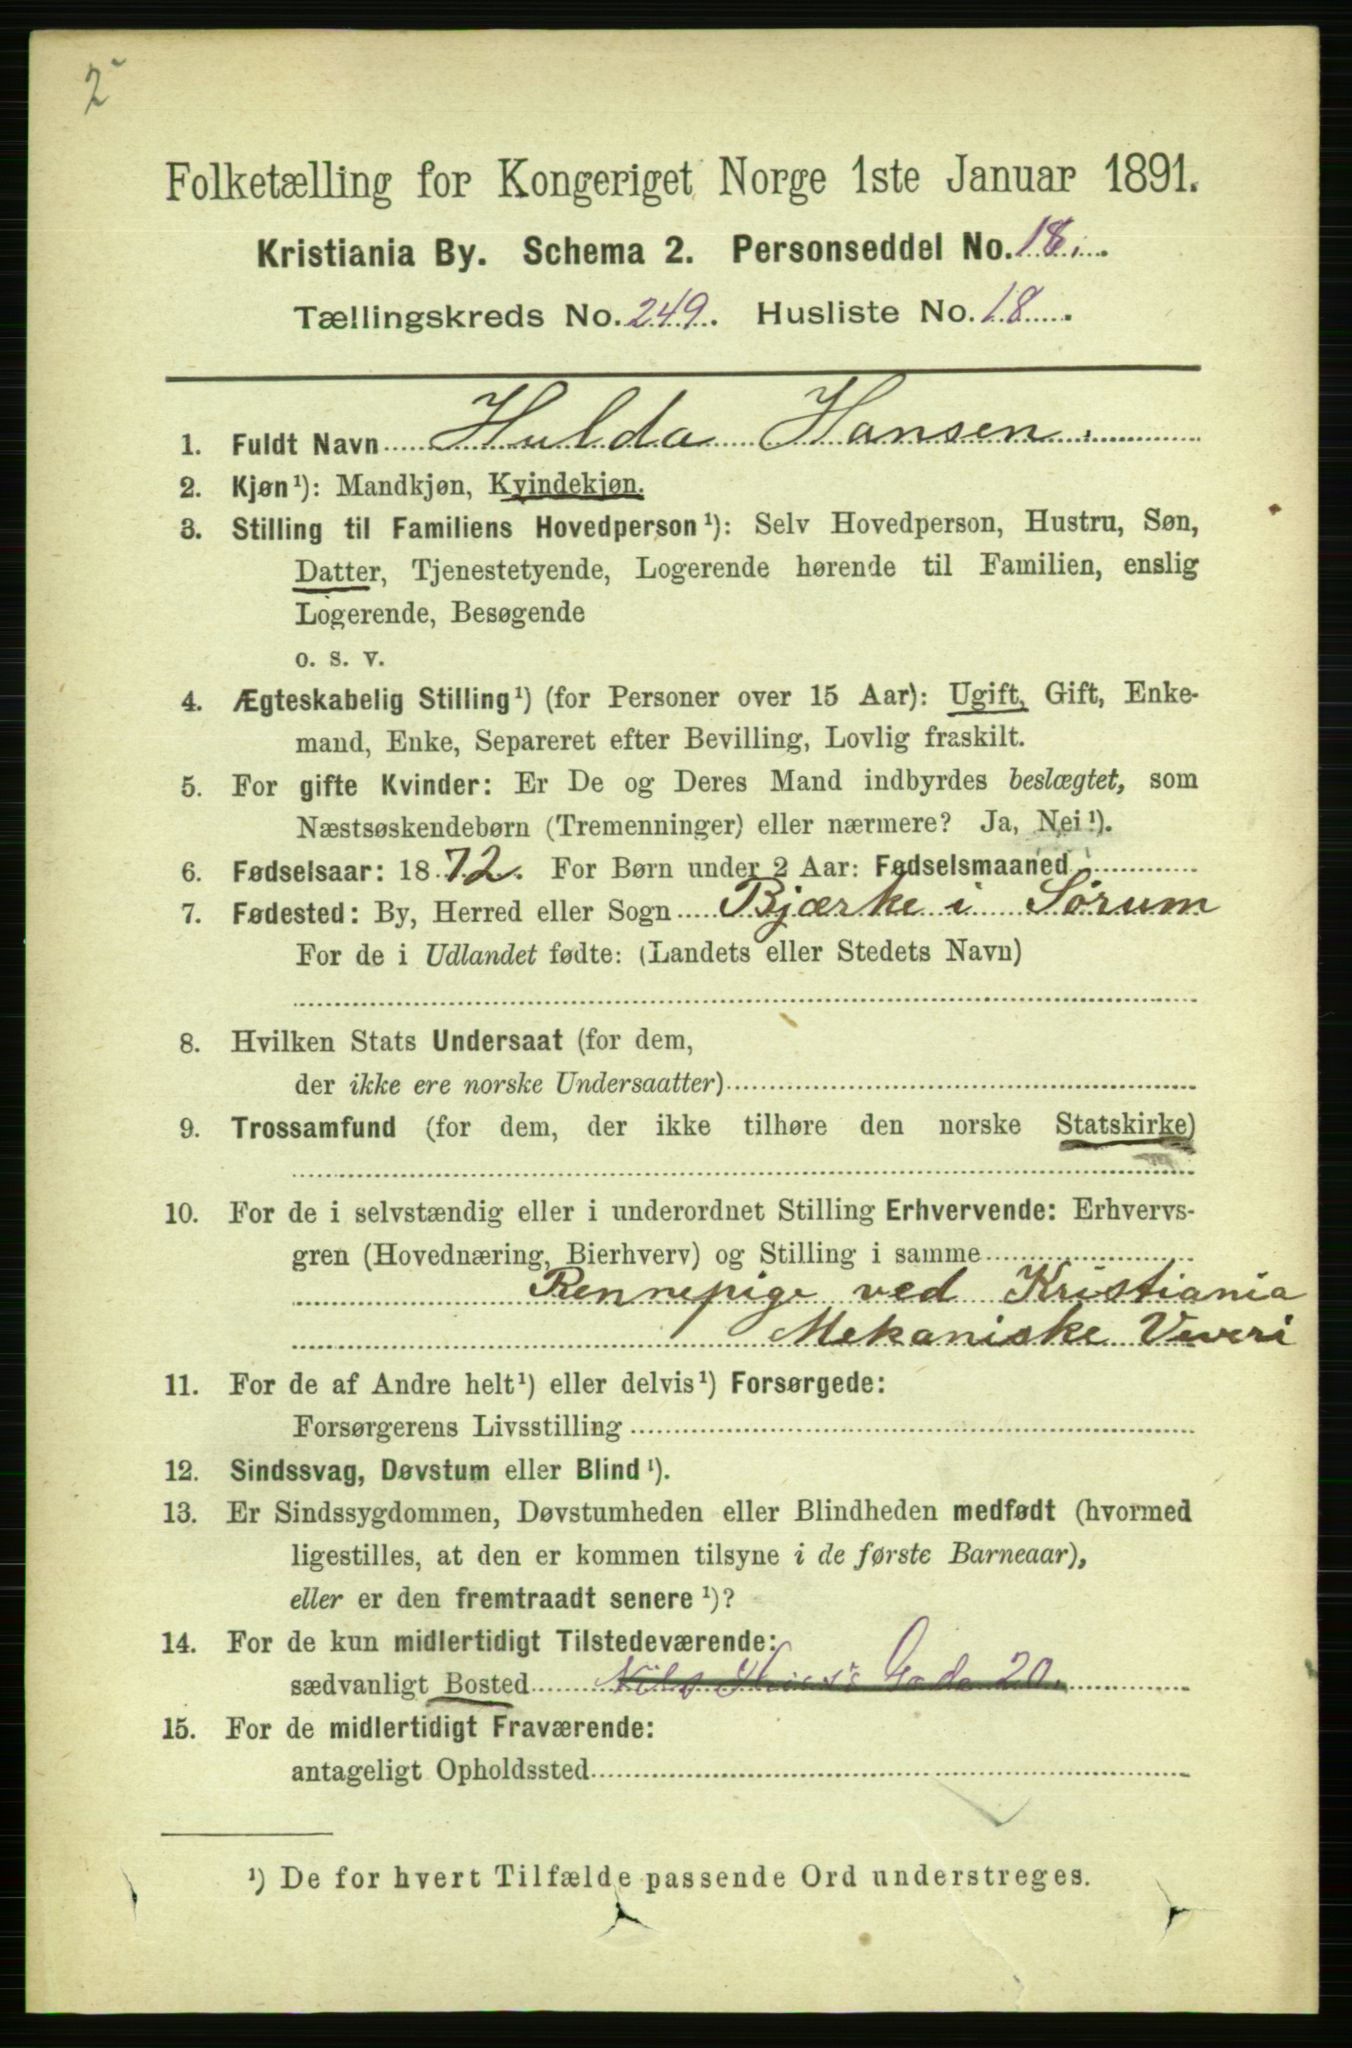 2
Folketælling for Kongeriget Norge 1ste Januar 1891.
Kristiania By. Schema 2. Personseddel No. 18.
Tællingskreds No. 249. Husliste No. 18.
1. Fuldt Navn Hulda Hansen.
2. Kjøn¹): Mandkjøn, Kvindekjøn.
3. Stilling til Familiens Hovedperson¹): Selv Hovedperson, Hustru, Søn,
Datter, Tjenestetyende, Logerende hørende til Familien, enslig
Logerende, Besøgende
o. s. v.
4. Ægteskabelig Stilling¹) (for Personer over 15 Aar): Ugift, Gift, Enke-
mand, Enke, Separeret efter Bevilling, Lovlig fraskilt.
5. For gifte Kvinder: Er De og Deres Mand indbyrdes beslægtet, som
Næstsøskendebørn (Tremenninger) eller nærmere? Ja, Nei¹).
6. Fødselsaar: 1872. For Børn under 2 Aar: Fødselsmaaned
7. Fødested: By, Herred eller Sogn Bjærke i Sørum
For de i Udlandet fødte: (Landets eller Stedets Navn)
8. Hvilken Stats Undersaat (for dem,
der ikke ere norske Undersaatter)
9. Trossamfund (for dem, der ikke tilhøre den norske Statskirke)
10. For de i selvstændig eller i underordnet Stilling Erhvervende: Erhvervs-
gren (Hovednæring, Bierhverv) og Stilling i samme
Rennepige ved Kristiania
Mekaniske Veveri
11. For de af Andre helt¹) eller delvis¹) Forsørgede:
Forsørgerens Livsstilling
12. Sindssvag, Døvstum eller Blind¹).
13. Er Sindssygdommen, Døvstumheden eller Blindheden medfødt (hvormed
ligestilles, at den er kommen tilsyne i de første Barneaar),
eller er den fremtraadt senere¹)?
14. For de kun midlertidigt Tilstedeværende:
sædvanligt Bosted Nils Gade 20.
15. For de midlertidigt Fraværende:
antageligt Opholdssted
¹) De for hvert Tilfælde passende Ord understreges.